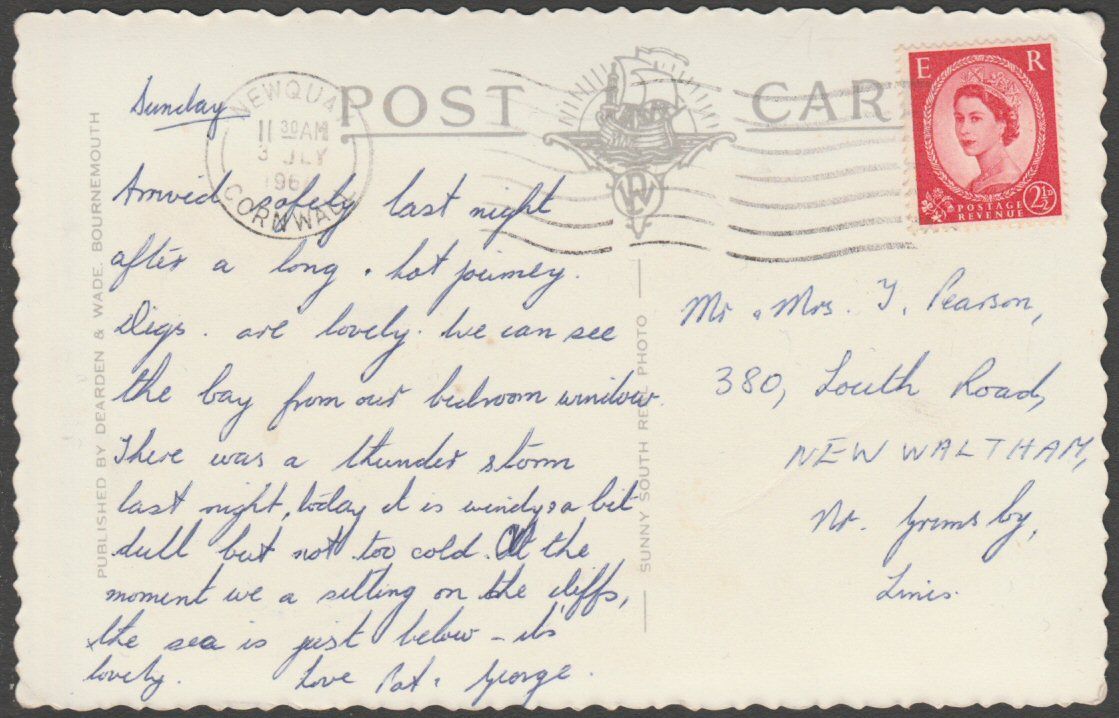 POST CARD
NEWQUAY
11 30 AM
3 JLY
196
CORNWALL
E R
POSTAGE
REVENUE
2½D
DW
PUBLISHED BY DEARDEN & WADE, BOURNEMOUTH
SUNNY SOUTH REAL PHOTO
Sunday
Arrived safely last night
after a long, hot journey.
Digs. are lovely. We can see
the bay from our bedroom window.
There was a thunder storm
last night, today it is windy & a bit
dull but not too cold. At the
moment we a sitting on the cliffs,
the sea is just below - its
lovely. Love Pat & George.
Mr & Mrs. J. Pearson,
380, Louth Road,
NEW WALTHAM,
Nr. Grimsby,
Lincs.